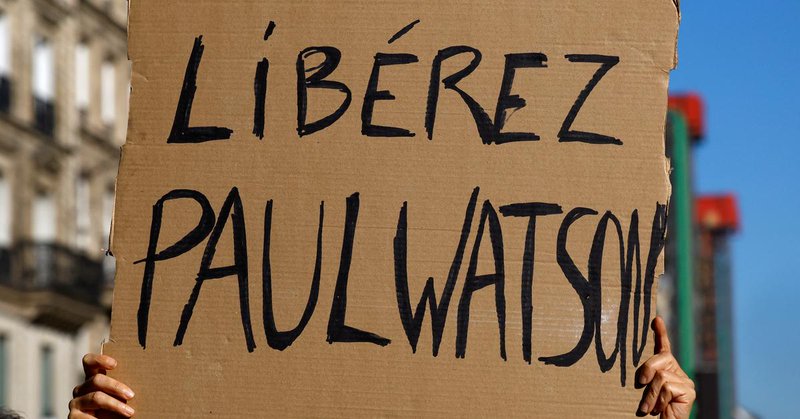 LIBÉREZ
PAUL WATSON